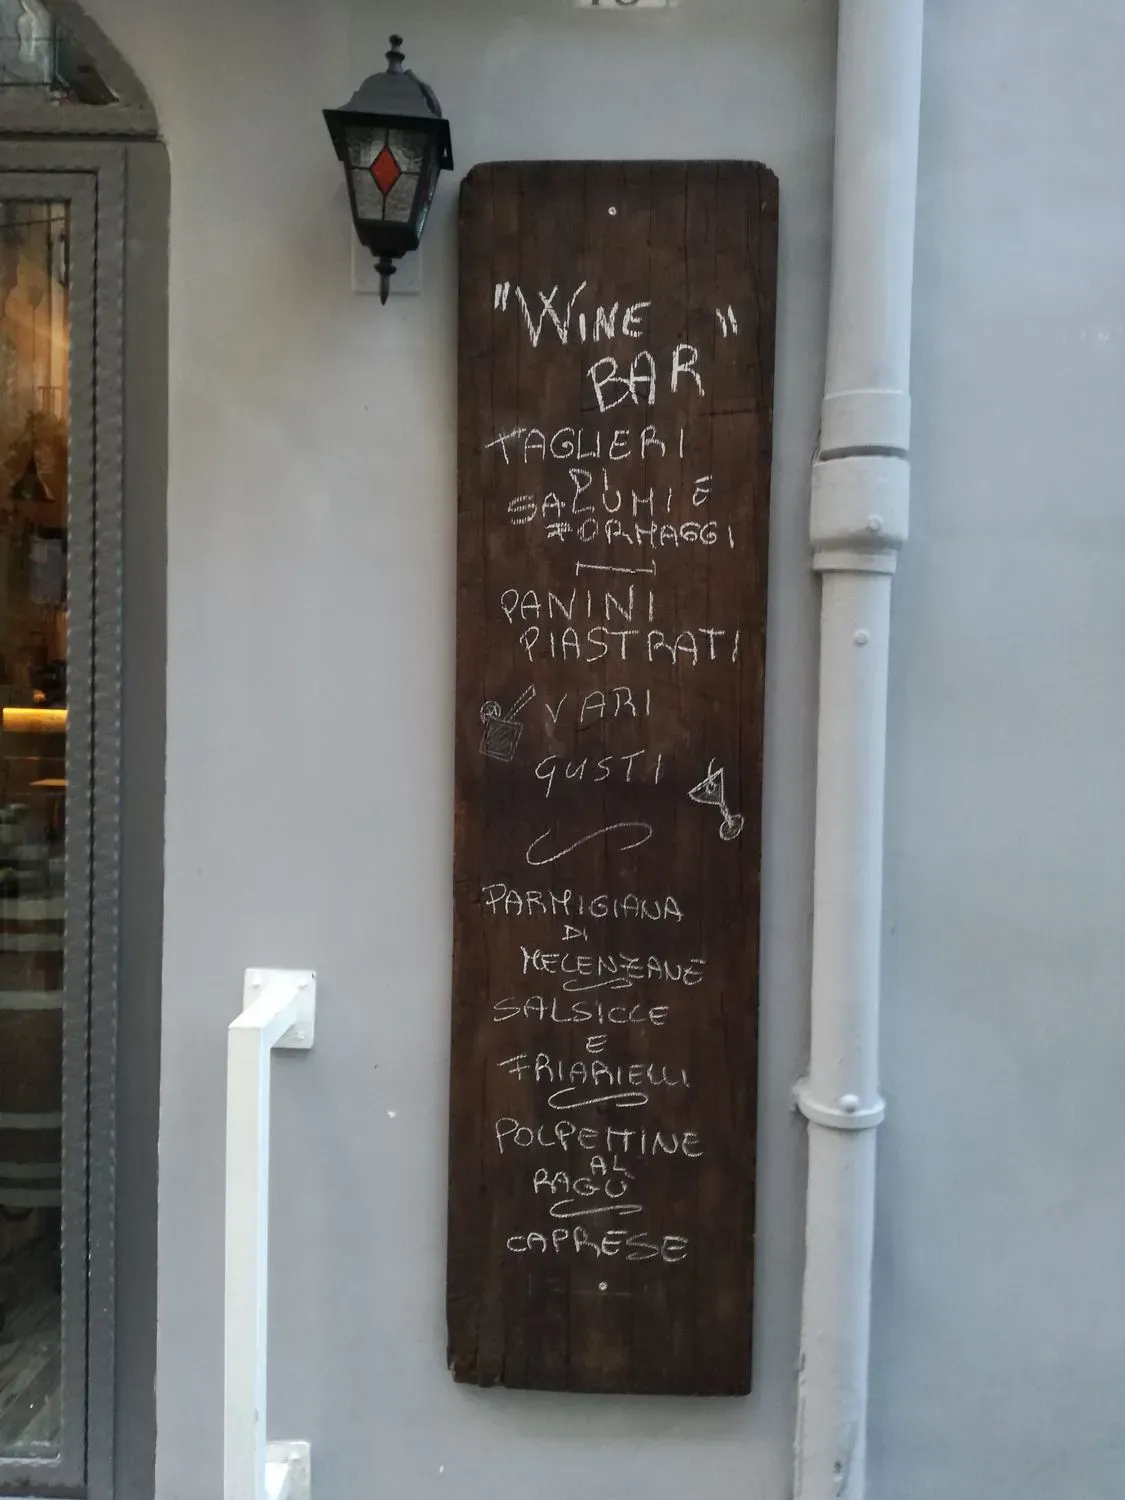 "WINE "
BAR
TAGLIERI
DI
SALUMI E
FORMAGGI
PANINI
PIASTRATI
VARI
GUSTI
PARMIGIANA
DI
MELENZANE
SALSICCE
E
FRIARIELLI
POLPETTINE
AL
RAGÙ
CAPRESE